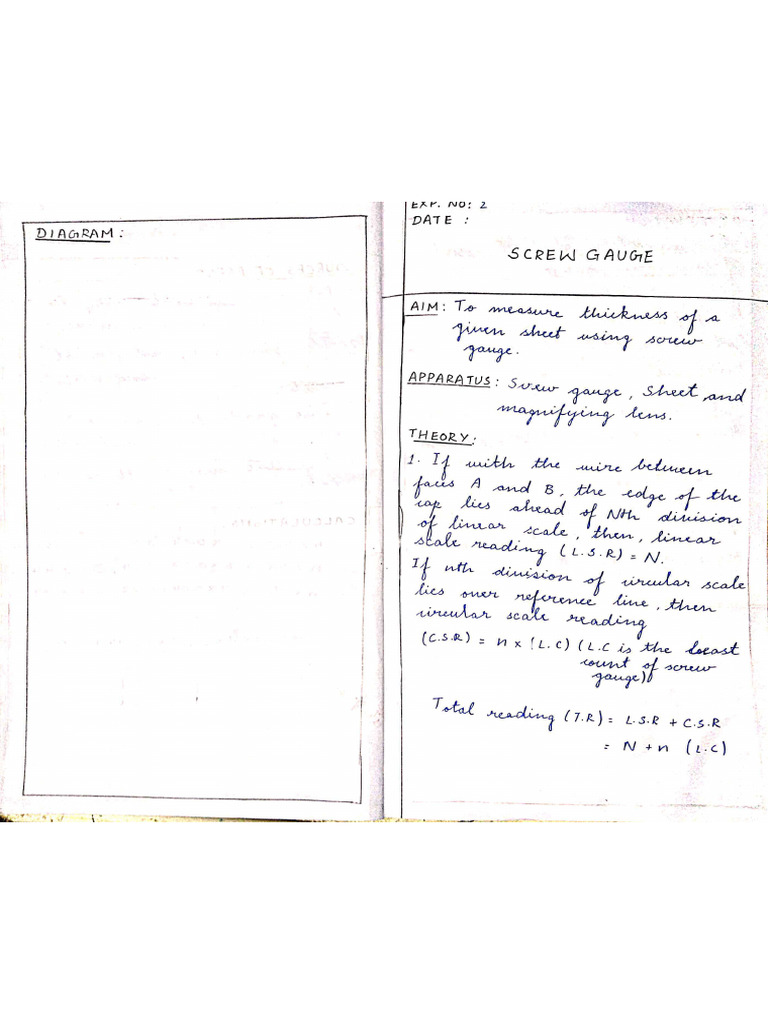 DIAGRAM:
EXP. NO: 2
DATE :
SCREW GAUGE
AIM: To measure thickness of a
given sheet using screw
gauge.
APPARATUS: Screw gauge, Sheet and
magnifying lens.
THEORY:
1. If with the wire between
faces A and B, the edge of the
cap lies ahead of Nth division
of linear scale, then, linear
scale reading (L.S.R) = N.
If nth division of circular scale
lies over reference line, then
circular scale reading
(C.S.R) = n x (L.C) (L.C is the least
count of screw
gauge)
Total reading (T.R) = L.S.R + C.S.R
= N + n (L.C)